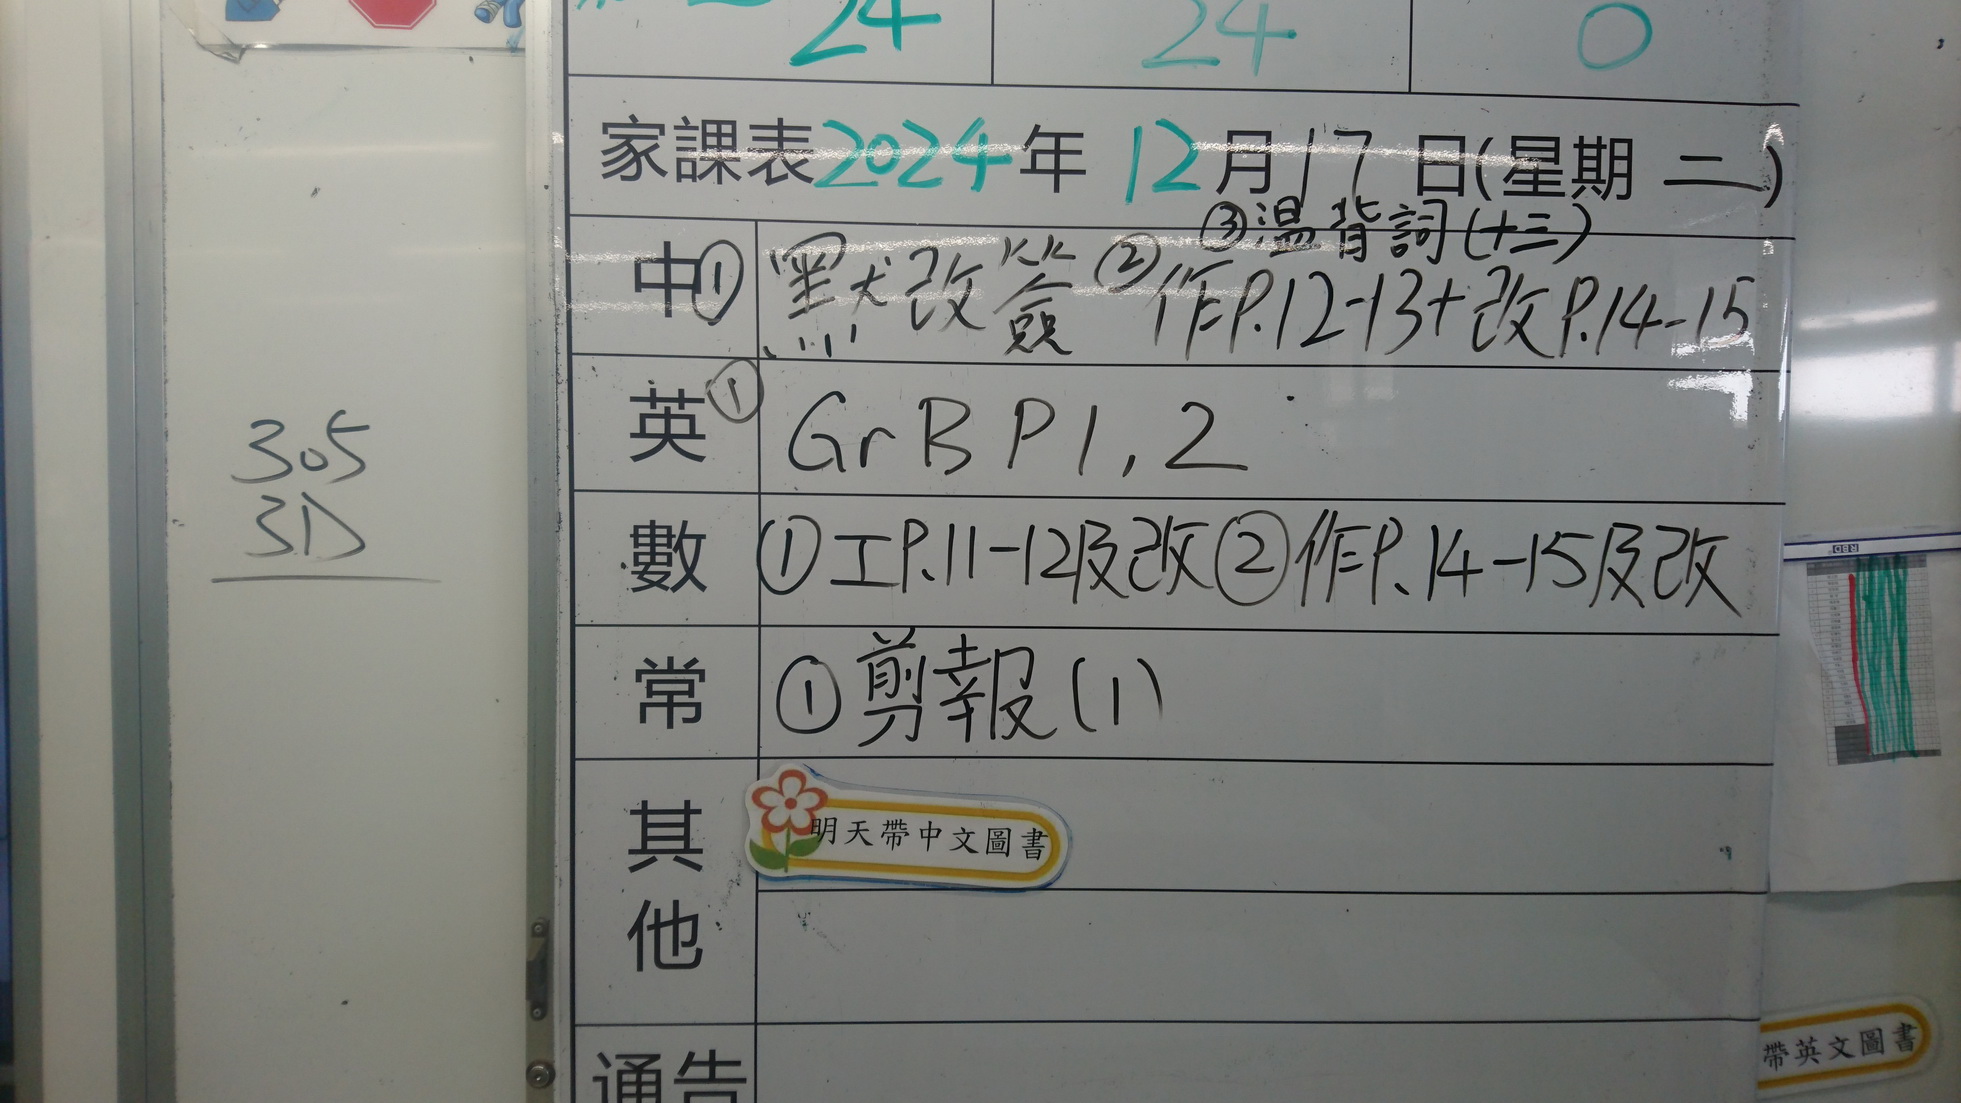 24 24 0
家課表2024年 12月17日(星期 二)
③溫背詞(十三)
中① 默改簽 ②作P.12-13+改P.14-15
英① GrB P1,2
數 ①工P.11-12及改②作P.14-15及改
常 ①剪報(1)
其他
明天帶中文圖書
通告
305
3D
RBD
帶英文圖書